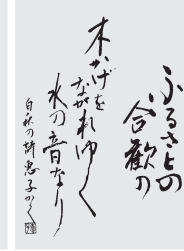 ふるさとの
合歓の
木かげを
ながれゆく
水の音なり
白秋の詩 恵子かく